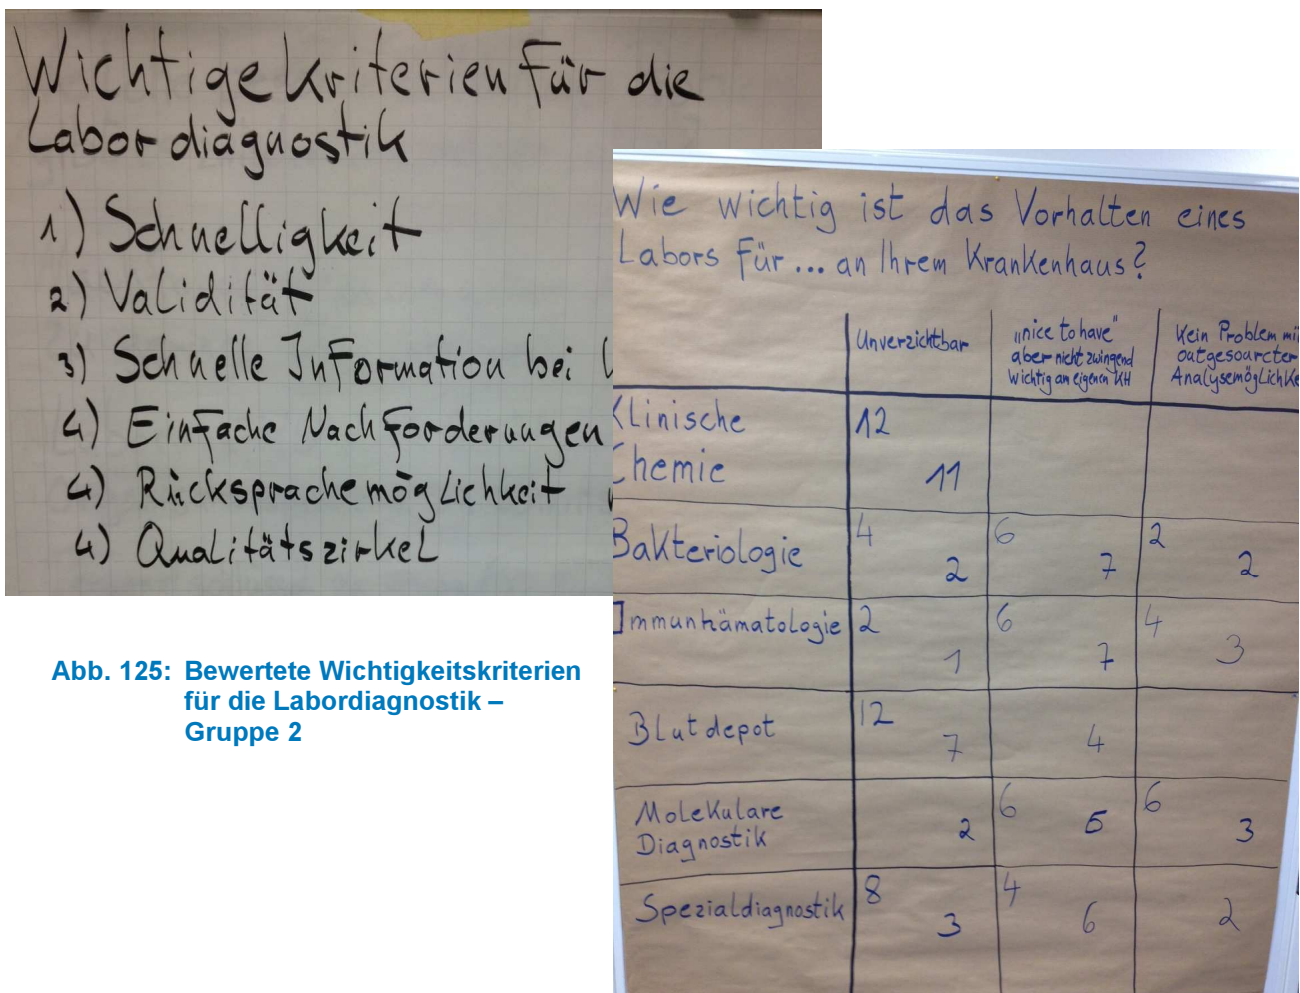 Wichtige Kriterien für die
Labordiagnostik
1) Schnelligkeit
2) Validität
3) Schnelle Information bei
4) Einfache Nachforderungen
4) Rücksprachemöglichkeit
4) Qualitätszirkel
Abb. 125: Bewertete Wichtigkeitskriterien
für die Labordiagnostik –
Gruppe 2
Wie wichtig ist das Vorhalten eines
Labors für... an Ihrem Krankenhaus?
Unverzichtbar
„nice to have"
aber nicht zwingend
wichtig am eigenen KH
Kein Problem mi
outgesoarcter
Analysemöglichke
Klinische
Chemie
12
11
Bakteriologie
4
2
6
7
2
2
Immunhämatologie
2
1
6
7
4
3
Blutdepot
12
7
4
Molekulare
Diagnostik
2
6
5
6
3
Spezialdiagnostik
8
3
4
6
2